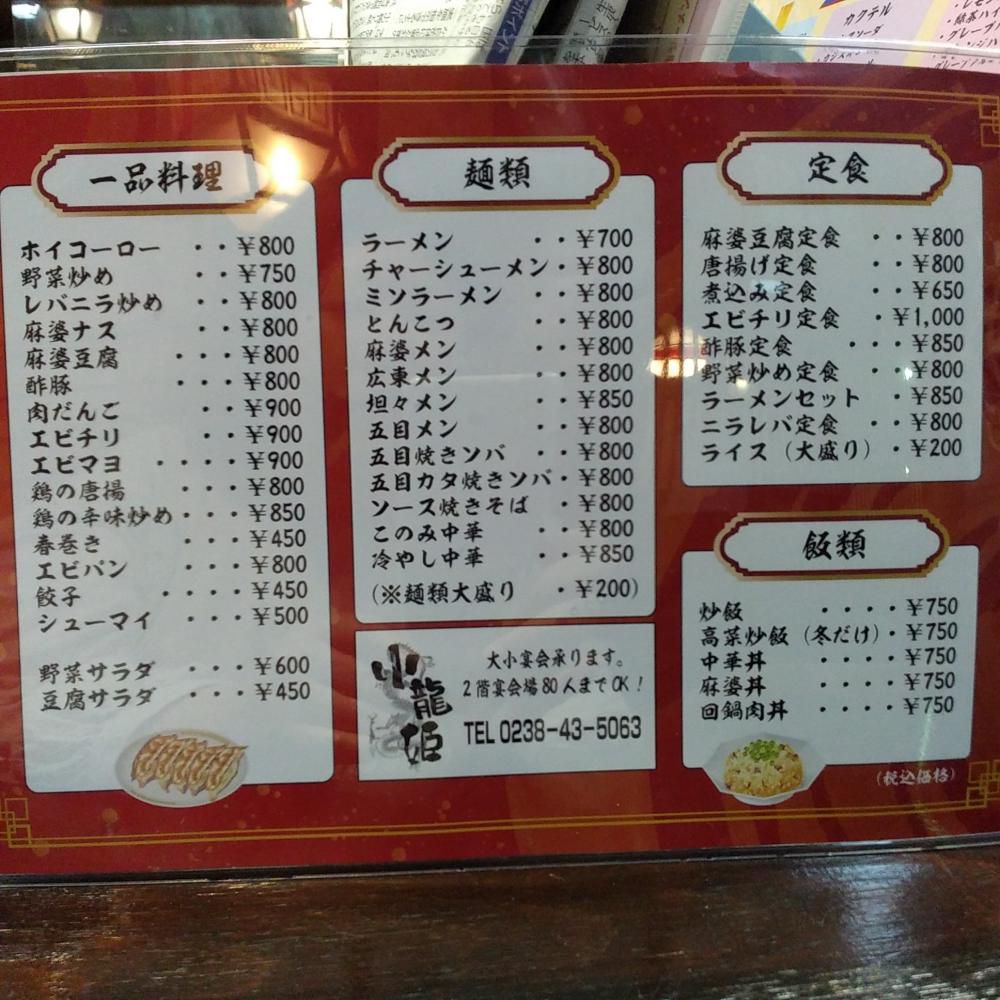 カクテル
一品料理
ホイコーロー ・・¥800
野菜炒め ・・¥750
レバニラ炒め ・・¥800
麻婆ナス ・・¥800
麻婆豆腐 ・・・¥800
酢豚 ・・・¥800
肉だんご ・・¥900
エビチリ ・・¥900
エビマヨ ・・・・¥900
鶏の唐揚 ・・・¥800
鶏の辛味炒め・・・¥850
春巻き ・・・¥450
エビパン ・・・¥800
餃子 ・・・・¥450
シューマイ ・・・¥500
野菜サラダ ・・・¥600
豆腐サラダ ・・・¥450
麺類
ラーメン ・・¥700
チャーシューメン・¥800
ミソラーメン ・・¥800
とんこつ ・・¥800
麻婆メン ・・¥800
広東メン ・・¥800
坦々メン ・・¥850
五目メン ・・¥800
五目焼きソバ ・・¥800
五目カタ焼きソバ・¥800
ソース焼きそば ・¥800
このみ中華 ・・¥800
冷やし中華 ・・¥850
(※麺類大盛り ・¥200)
小龍姫
大小宴会承ります。
2階宴会場80人までOK!
TEL 0238-43-5063
定食
麻婆豆腐定食 ・・¥800
唐揚げ定食 ・・¥800
煮込み定食 ・・¥650
エビチリ定食 ・¥1,000
酢豚定食 ・・・¥850
野菜炒め定食 ・・¥800
ラーメンセット ・・¥850
ニラレバ定食 ・・¥800
ライス(大盛り) ・¥200
飯類
炒飯 ・・・・¥750
高菜炒飯(冬だけ)・¥750
中華丼 ・・・・¥750
麻婆丼 ・・・・¥750
回鍋肉丼 ・・・¥750
(税込価格)